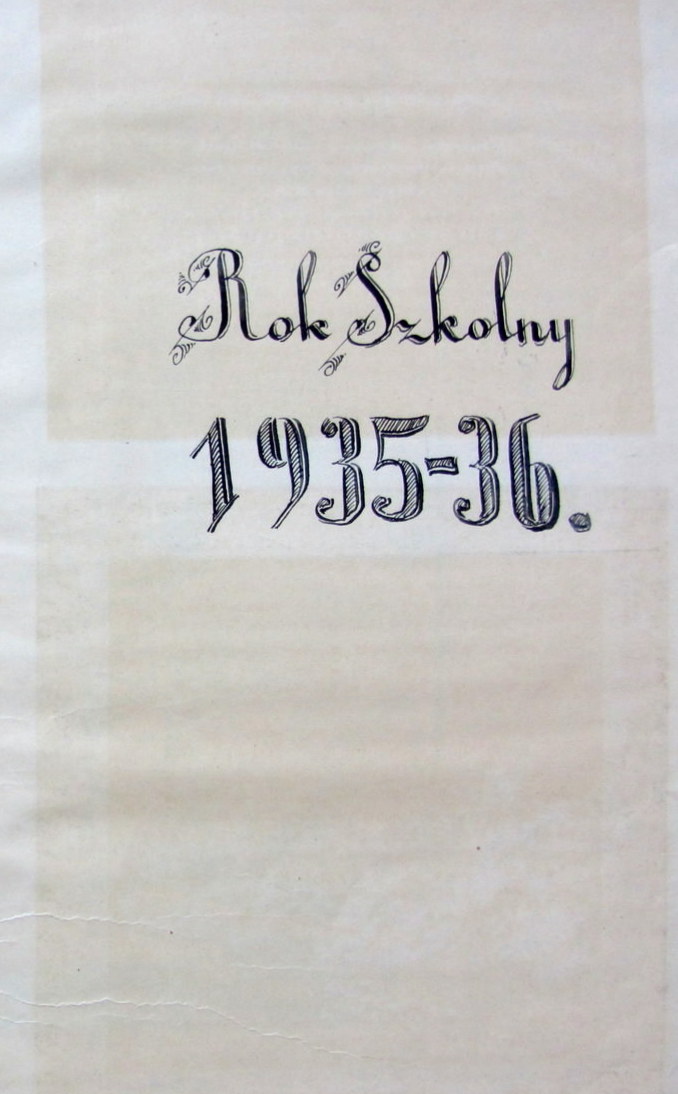 Rok Szkolny
1935-36.